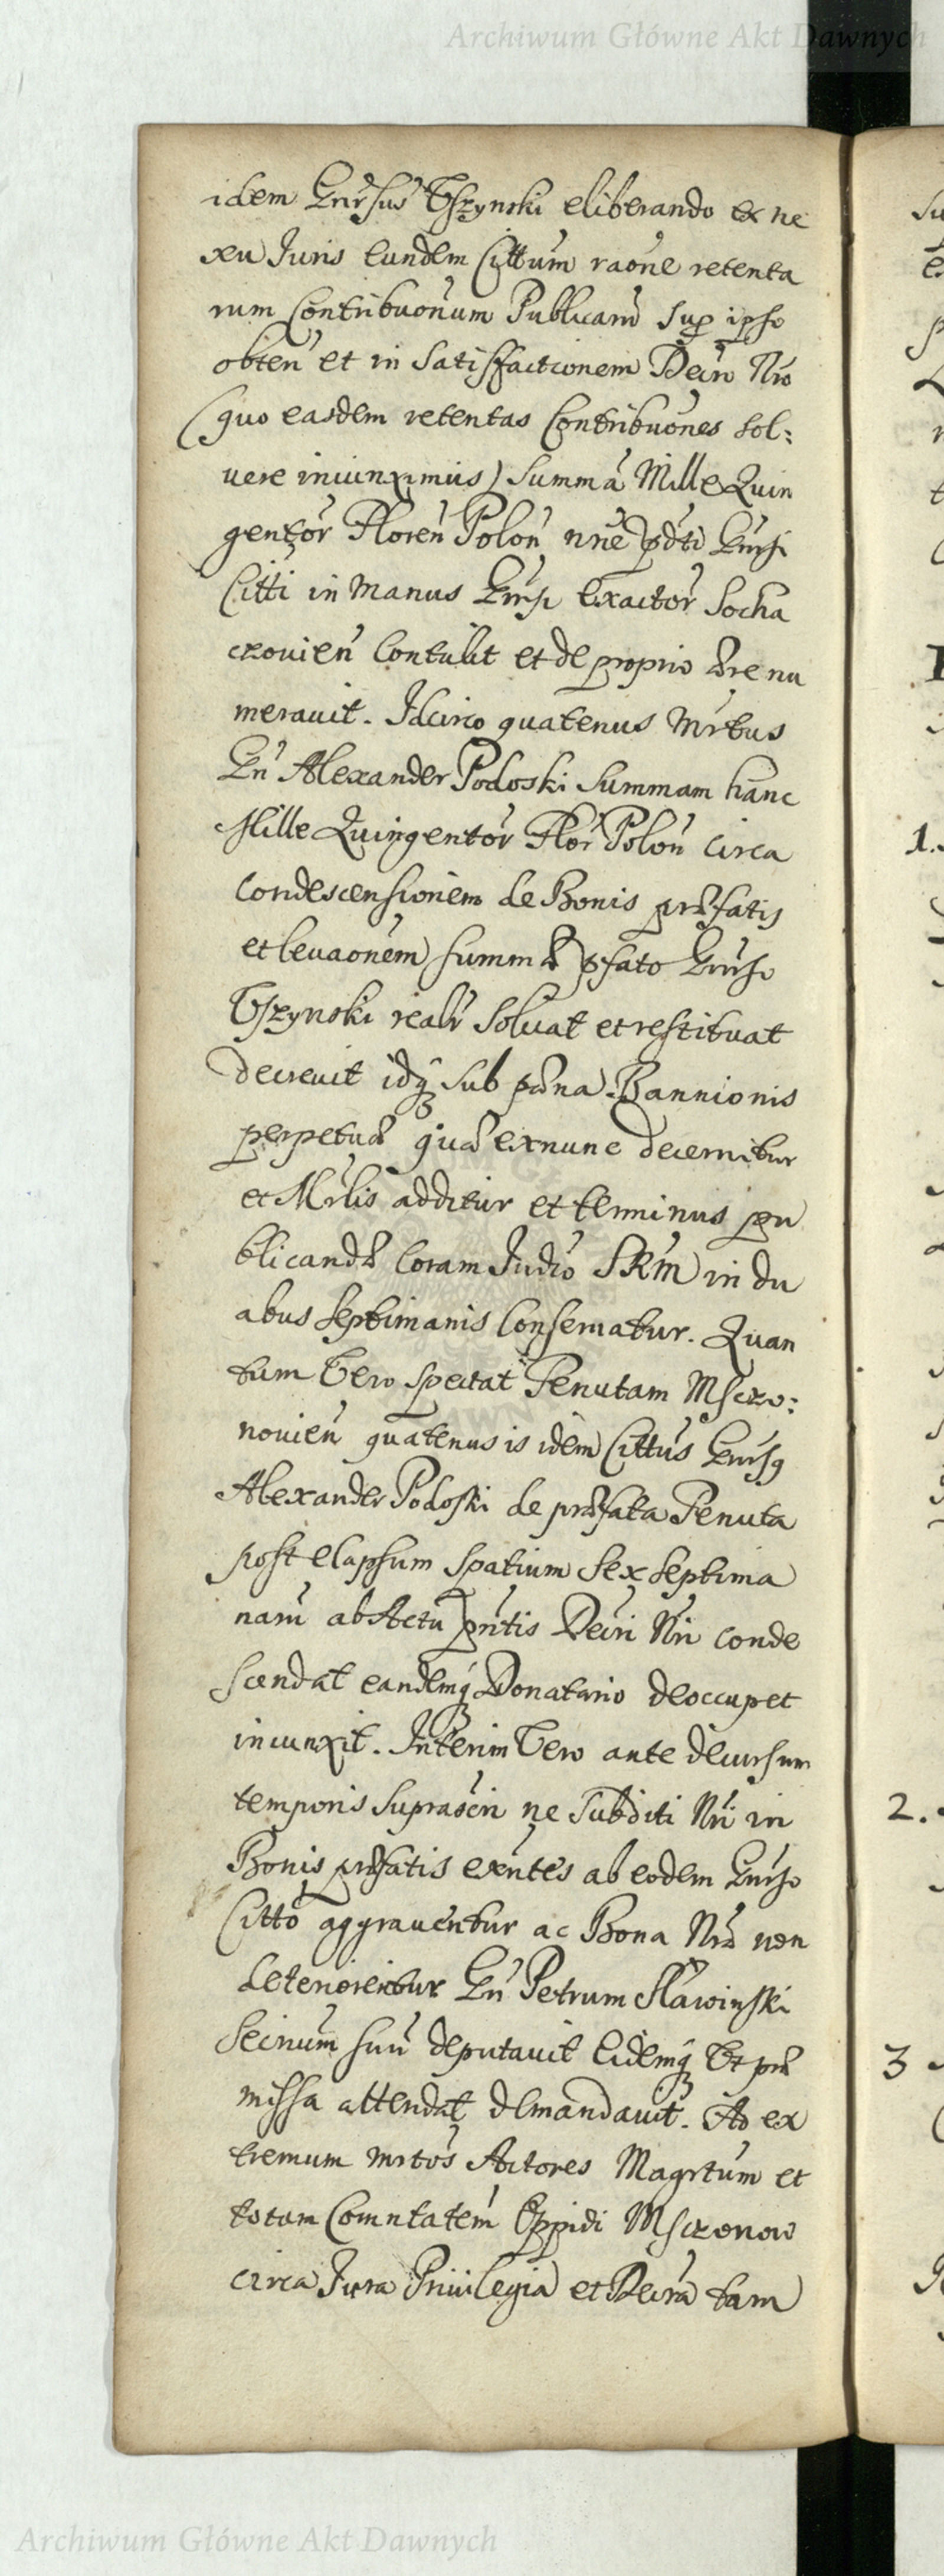 Archiwum Główne Akt Dawnych
idem Gnrsus Uszynski eliberando ex ne
xu Juris eundem Cittum raone retenta
rum Contribuonum Publicaru sup ipso
obten et in Satisfactionem Decri Nri
(quo easdem retentas Contribuones sol:
vere iniunximus) Summa Mille Quin
gentor Floren Polon nne pdti Gnrsi
Citti in Manus Gnrsi Exactor Socha
czouien Contulit et de proprio ære nu
merauit. Idcirco quatenus Mrtus
Gn Alexander Podoski Summam hanc
Mille Quingentor Flor Polon circa
Condescensionem de Bonis præfatis
et leuaonem summæ pfato Gnrso
Uszynski realr Soluat et restituat
decreuit idq sub pœna Bannionis
perpetuæ quæ exnunc decernitur
et Mrlis additur et terminus pu
blicandæ Coram Judio SRM in du
abus Septimanis Conseruatur. Quan
tum Vero spectat Tenutam Msczo:
nouien quatenus is idem Cittus Gnrsq
Alexander Podoski de præfata Tenuta
post elapsum spatium Sex Septima
naru ab Actu pntis Decri Nri conde
scendat eandemq Donatario deoccupet
iniunxit. Interim Vero ante decursum
temporis suprascri ne Subditi Nri in
Bonis præfatis exntes ab eodem Gnrso
Citto aggrauentur ac Bona Nra non
deteriorentur Gn Petrum Sławinski
Secrium suu deputauit Eidemq Vt præ
missa attendat demandauit. Ad ex
tremum mrtos Actores Magrtum et
totam Comntatem Oppidi Msczonow
circa Jura Priuilegia et Decra tam
1.
2.
3
Archiwum Główne Akt Dawnych